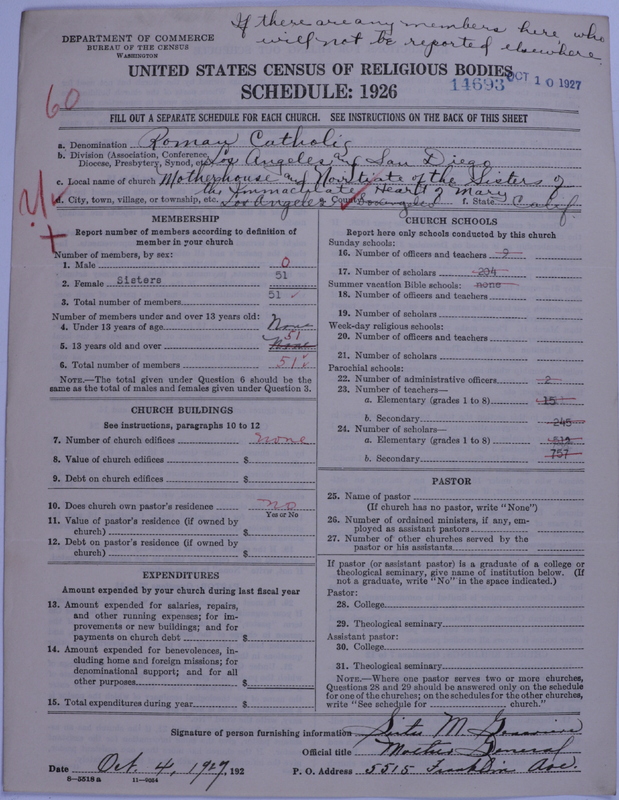 If there are any members here, who
will not be reported elsewhere.
DEPARTMENT OF COMMERCE
BUREAU OF THE CENSUS
WASHINGTON
UNITED STATES CENSUS OF RELIGIOUS BODIES
14693 OCT 10 1927
SCHEDULE: 1926
60
FILL OUT A SEPARATE SCHEDULE FOR EACH CHURCH. SEE INSTRUCTIONS ON THE BACK OF THIS SHEET
a. Denomination Roman Catholic
b. Division (Association, Conference, Diocese, Presbytery, Synod, etc.) Los Angeles and San Diego
c. Local name of church Motherhouse and Novitiate of the Sisters of
the Immaculate Heart of Mary
d. City, town, village, or township, etc. Los Angeles County Los Angeles f. State Calif
MEMBERSHIP
Report number of members according to definition of
member in your church
Number of members, by sex:
1. Male 0
2. Female Sisters 51
3. Total number of members 51
Number of members under and over 13 years old:
4. Under 13 years of age None
5. 13 years old and over None 51
6. Total number of members 51
NOTE.—The total given under Question 6 should be the
same as the total of males and females given under Question 3.
CHURCH BUILDINGS
See instructions, paragraphs 10 to 12
7. Number of church edifices none
8. Value of church edifices $
9. Debt on church edifices $
10. Does church own pastor's residence no
Yes or No
11. Value of pastor's residence (if owned by
church) $
12. Debt on pastor's residence (if owned by
church) $
EXPENDITURES
Amount expended by your church during last fiscal year
13. Amount expended for salaries, repairs,
and other running expenses; for im-
provements or new buildings; and for
payments on church debt $
14. Amount expended for benevolences, in-
cluding home and foreign missions; for
denominational support; and for all
other purposes $
15. Total expenditures during year $
CHURCH SCHOOLS
Report here only schools conducted by this church
Sunday schools:
16. Number of officers and teachers 9
17. Number of scholars 294
Summer vacation Bible schools: none
18. Number of officers and teachers
19. Number of scholars
Week-day religious schools:
20. Number of officers and teachers
21. Number of scholars
Parochial schools:
22. Number of administrative officers 2
23. Number of teachers—
a. Elementary (grades 1 to 8) 15
b. Secondary 245
24. Number of scholars—
a. Elementary (grades 1 to 8)
b. Secondary 757
PASTOR
25. Name of pastor
(If church has no pastor, write "None")
26. Number of ordained ministers, if any, em-
ployed as assistant pastors
27. Number of other churches served by the
pastor or his assistants
If pastor (or assistant pastor) is a graduate of a college or
theological seminary, give name of institution below. (If
not a graduate, write "No" in the space indicated.)
Pastor:
28. College
29. Theological seminary
Assistant pastor:
30. College
31. Theological seminary
NOTE.—Where one pastor serves two or more churches,
Questions 28 and 29 should be answered only on the schedule
for one of the churches; on the schedules for the other churches,
write "See schedule for church."
Signature of person furnishing information Sister M. Genevieve
Official title Mother General
Date Oct. 4, 1927, 192 P. O. Address 5515 Franklin Ave.
8—5518 a 11—9024